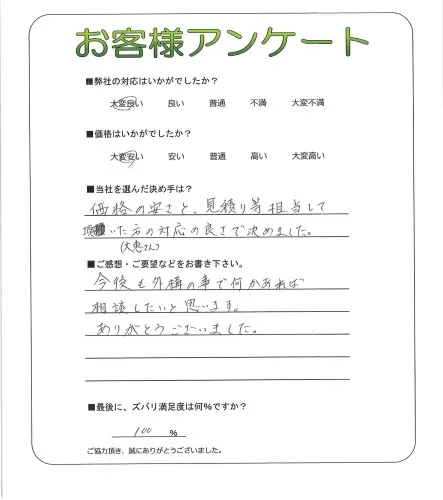 お客様アンケート
■弊社の対応はいかがでしたか?
大変良い 良い 普通 不満 大変不満
■価格はいかがでしたか?
大変安い 安い 普通 高い 大変高い
■当社を選んだ決め手は?
価格の安さと、見積り等担当して
頂いた方の対応の良さで決めました。
(大恵さん)
■ご感想・ご要望などをお書き下さい。
今後も外構の事で何かあれば
相談したいと思います。
ありがとうございました。
■最後に、ズバリ満足度は何%ですか?
100 %
ご協力頂き、誠にありがとうございました。